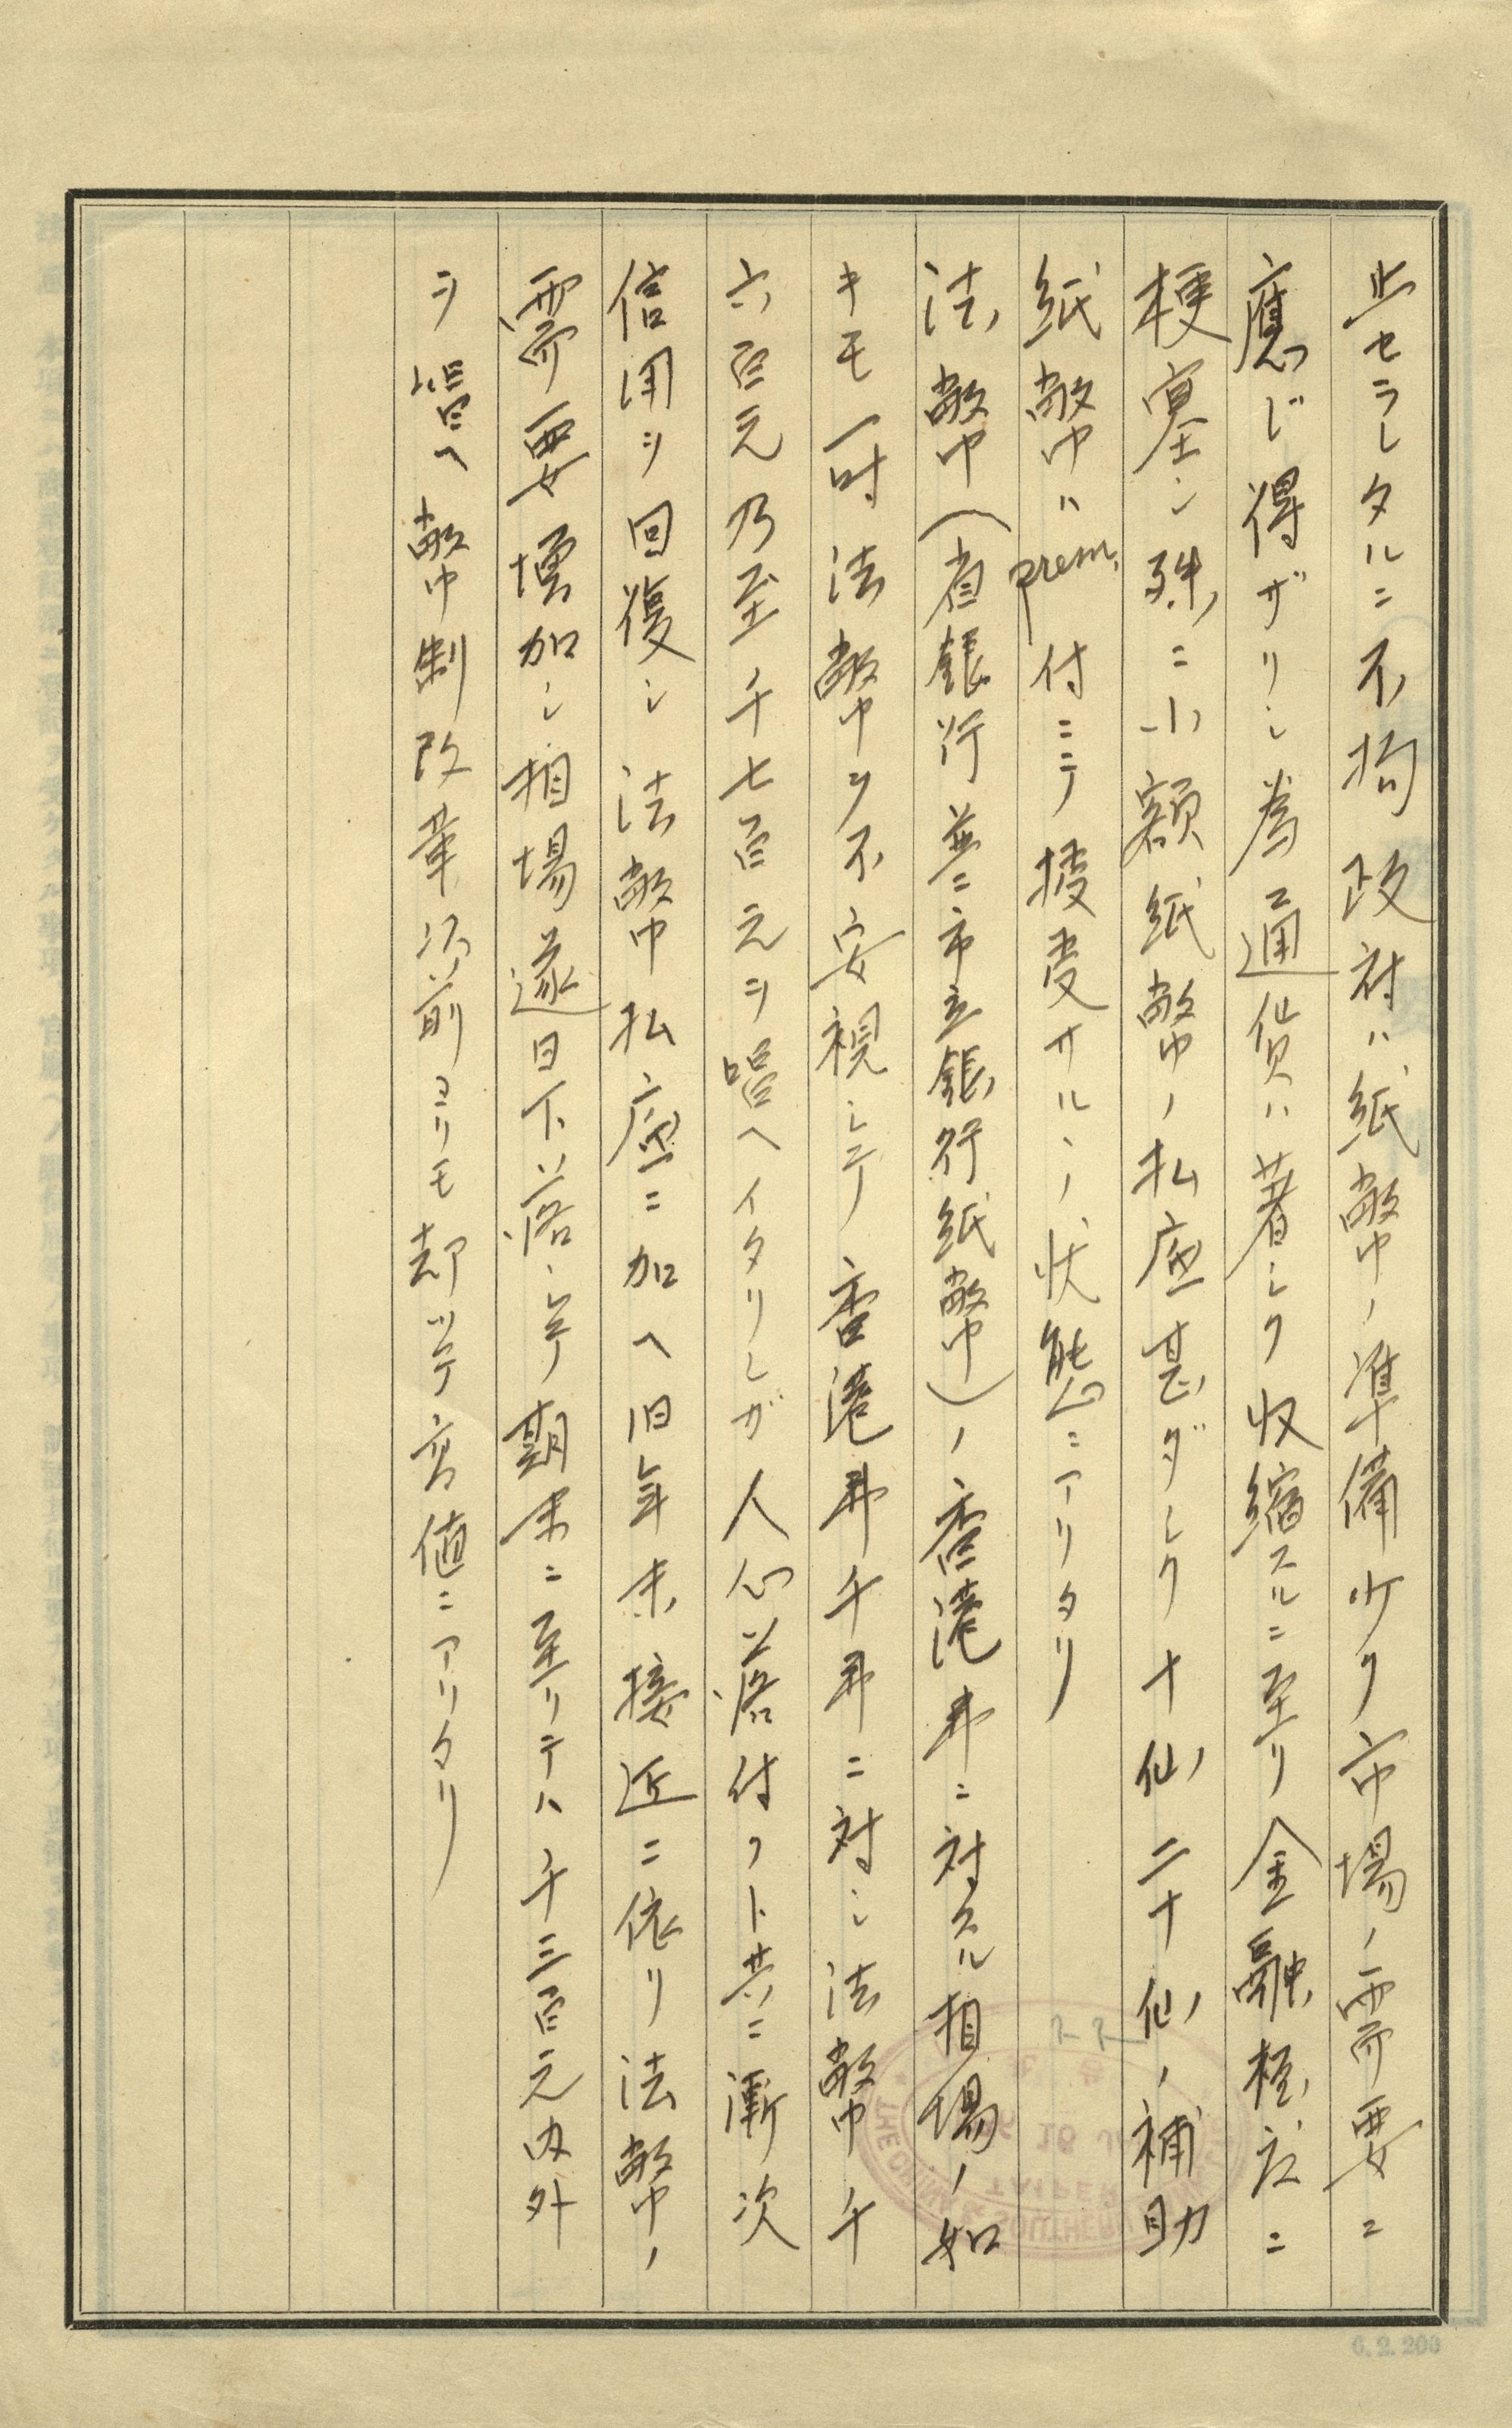 止セラレタルニ不拘政府ハ紙幣ノ準備少ク市場ノ需要ニ
應じ得ザリシ為通貨ハ著シク収縮スルニ至リ金融極度ニ
梗塞シ殊ニ小額紙幣ノ払底甚ダシク十仙二十仙ノ補助
紙幣ハprem.付ニテ授受サルヽノ状態ニアリタリ
法幣(省銀行並ニ市立銀行紙幣)ノ香港弗ニ対スル相場ノ如
キモ一時法幣ヲ不安視シテ香港弗千弗ニ対シ法幣千
六百元乃至千七百元ヲ唱ヘイタリシガ人心落付クト共ニ漸次
信用ヲ回復シ法幣払底ニ加ヘ旧年末接近ニ依リ法幣ノ
需要増加シ相場逐日下落シテ期末ニ至リテハ千三百元内外
ヲ唱ヘ幣制改革以前ヨリモ却ツテ高値ニアリタリ
TAIPEH
6.2.200